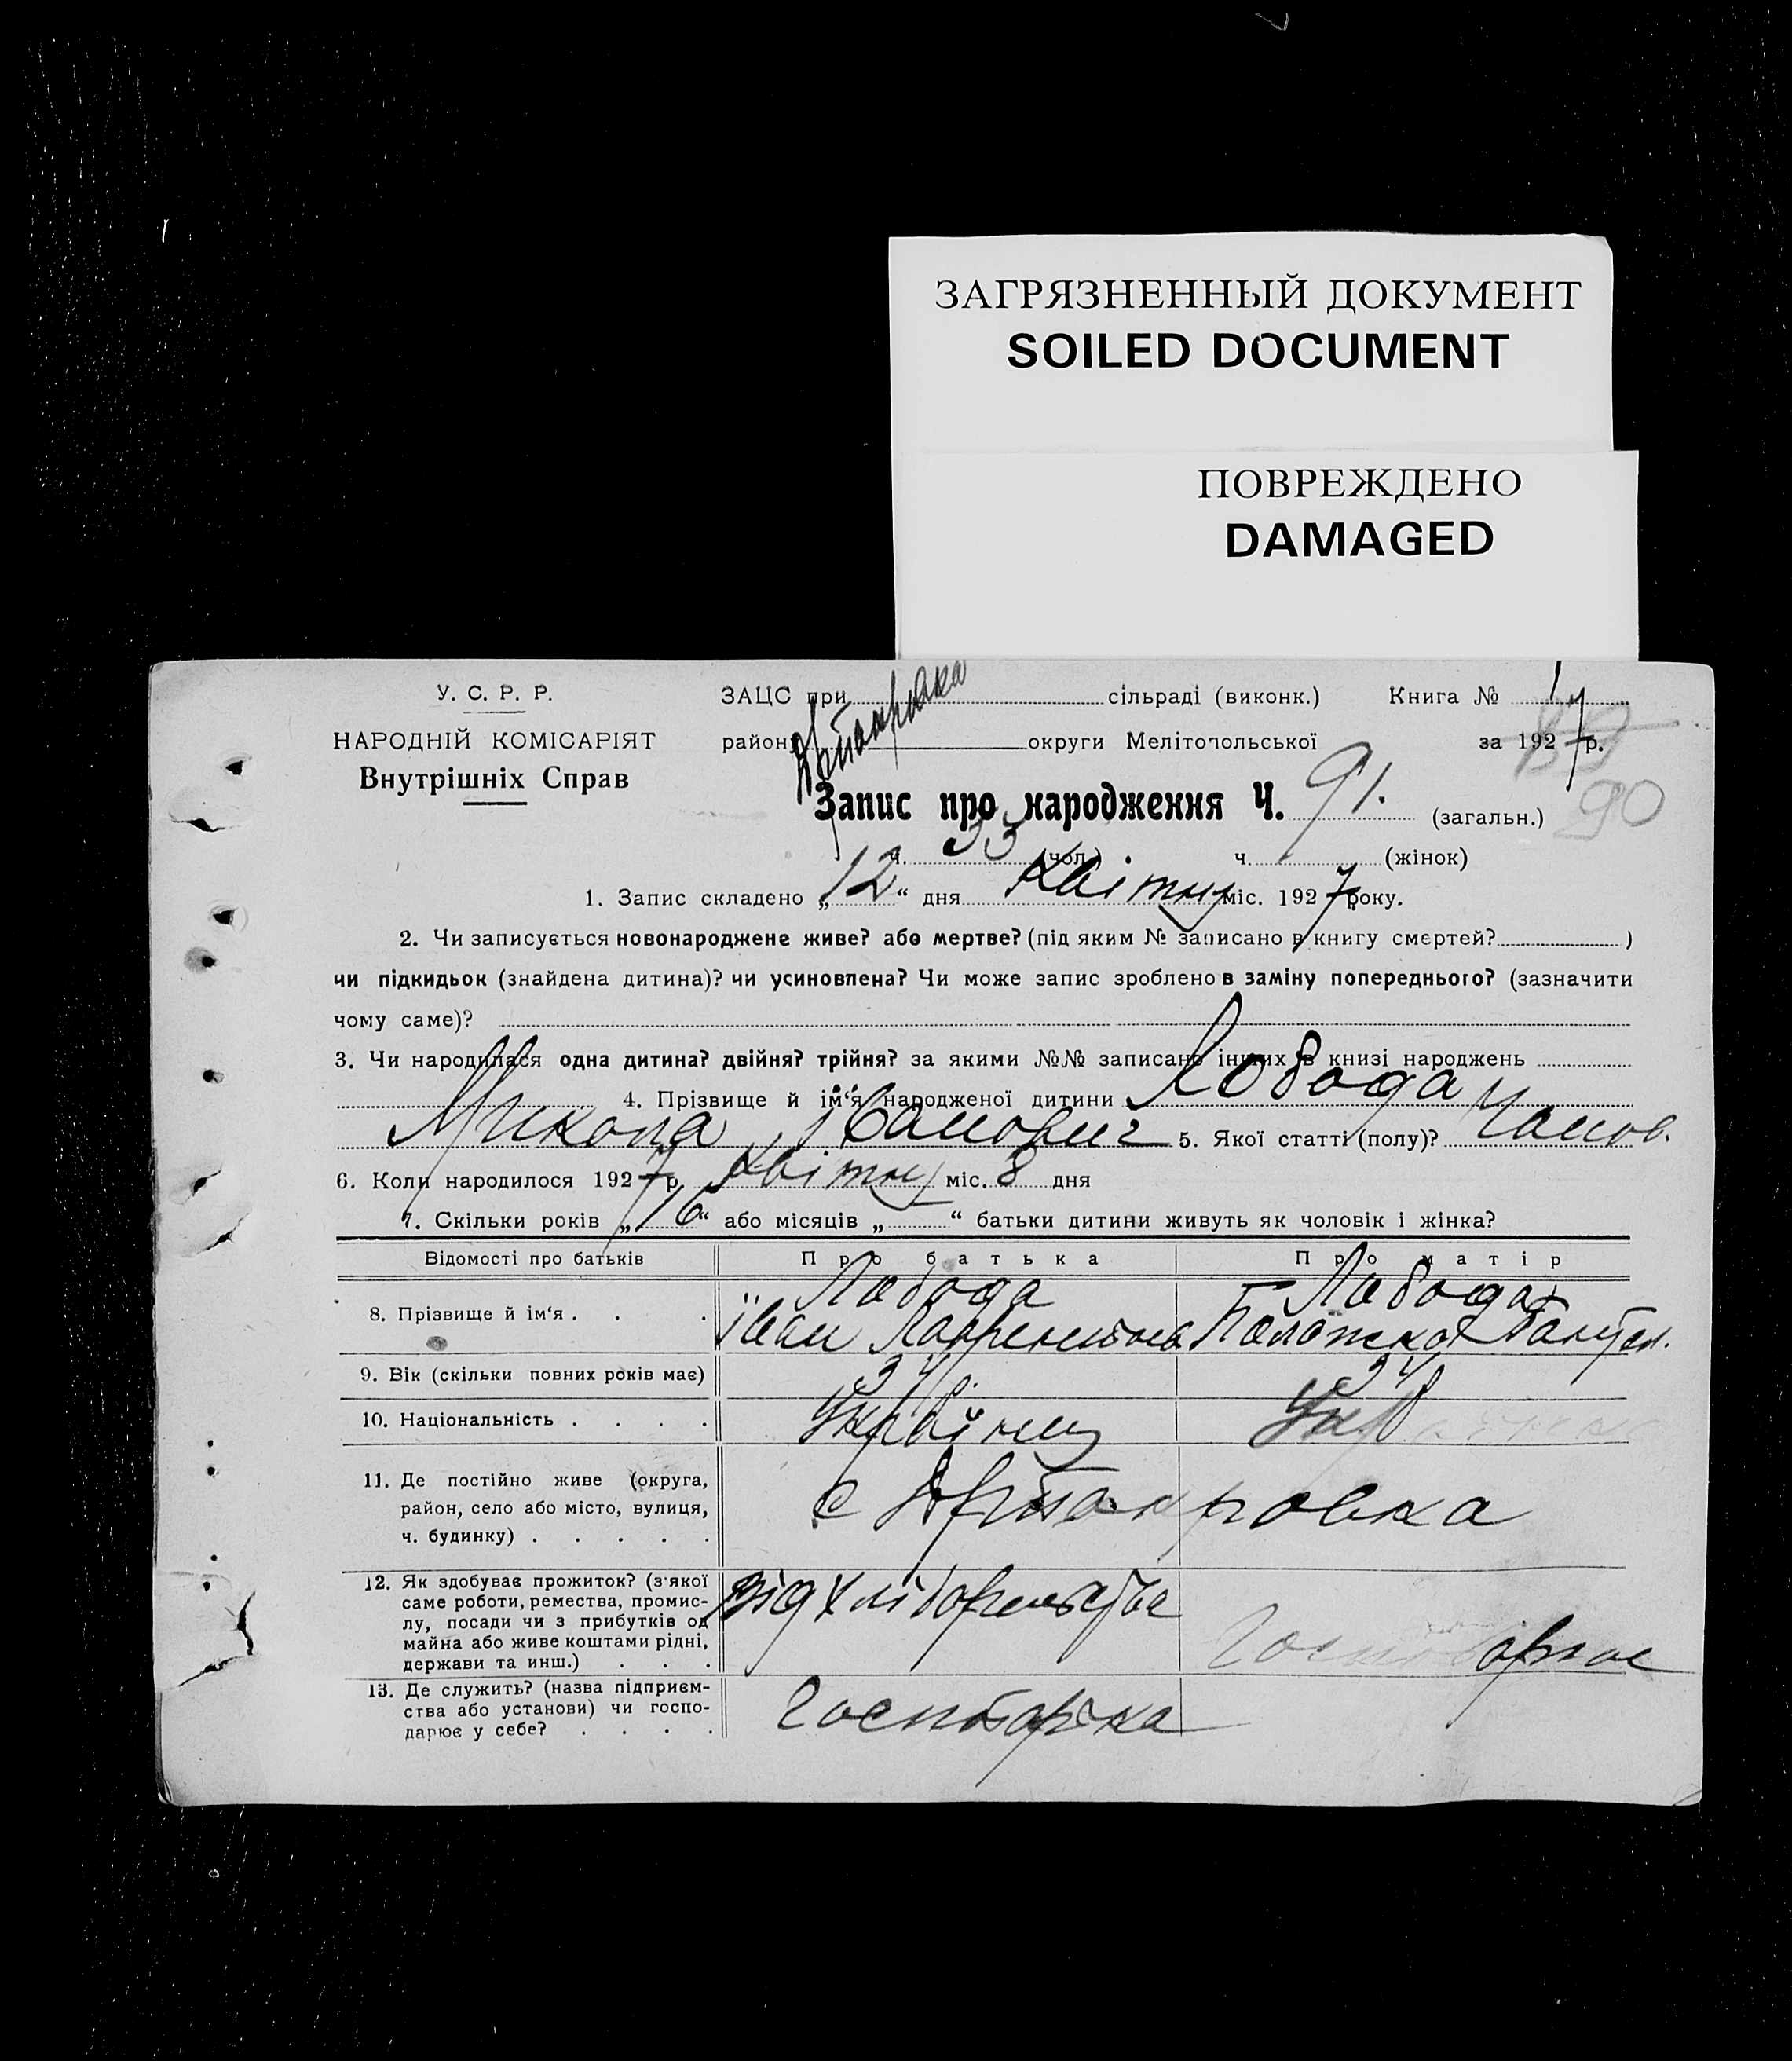 ЗАГРЯЗНЕННЫЙ ДОКУМЕНТ
SOILED DOCUMENT
ПОВРЕЖДЕНО
DAMAGED
У. С. Р. Р.
НАРОДНІЙ КОМІСАРІЯТ
Внутрішніх Справ
ЗАЦС при сільраді (виконк.) Книга № 1
район округи Мелітопольської за 1927 р.
Запис про народження Ч. 91. (загальн.) 90
ч. 53 (чол.) ч. (жінок)
1. Запис складено „12“ дня Квітня міс. 1927 року.
2. Чи записується новонароджене живе? або мертве? (під яким № записано в книгу смертей? )
чи підкидьок (знайдена дитина)? чи усиновлена? Чи може запис зроблено в заміну попереднього? (зазначити
чому саме)?
3. Чи народилася одна дитина? двійня? трійня? за якими №№ записано інших в книзі народжень
4. Прізвище й ім‘я народженої дитини Лобода
Микола Іванович 5. Якої статті (полу)? Чолов.
6. Коли народилося 1927 р. Квітня міс. 8 дня
7. Скільки років „16“ або місяців „ “ батьки дитини живуть як чоловік і жінка?
Відомості про батьків Про батька Про матір
8. Прізвище й ім‘я . . . Лобода Лобода
Іван
9. Вік (скільки повних років має) 34 р. 34
10. Національність . . . . Українец Укр
11. Де постійно живе (округа,
район, село або місто, вулиця,
ч. будинку) . . . . . с
12. Як здобуває прожиток? (з якої
саме роботи, ремества, промис-
лу, посади чи з прибутків од
майна або живе коштами рідні,
держави та инш.) . . .
від
13. Де служить? (назва підприєм-
ства або установи) чи госпо-
дарює у себе? . . . .